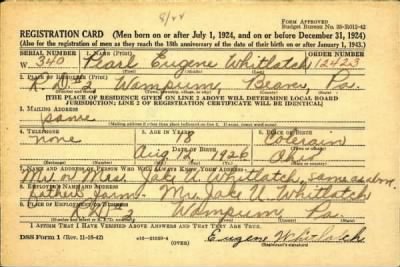 8/44
FORM APPROVED
Budget Bureau No. 33-R012-42
REGISTRATION CARD (Men born on or after July 1, 1924, and on or before December 31, 1924)
(Also for the registration of men as they reach the 18th anniversary of the date of their birth on or after January 1, 1943.)
SERIAL NUMBER 1. NAME (Print) ORDER NUMBER
W 340 Pearl Eugene Whitlatch 12423
2. PLACE OF RESIDENCE (Print)
R. D. #2 Wampum, Beaver Pa.
[THE PLACE OF RESIDENCE GIVEN ON LINE 2 ABOVE WILL DETERMINE LOCAL BOARD
JURISDICTION; LINE 2 OF REGISTRATION CERTIFICATE WILL BE IDENTICAL]
3. MAILING ADDRESS
same
4. TELEPHONE 5. AGE IN YEARS 6. PLACE OF BIRTH
none 18 Colerain
DATE OF BIRTH
Aug 12, 1926 Ohio
7. NAME AND ADDRESS OF PERSON WHO WILL ALWAYS KNOW YOUR ADDRESS
Mr. or Mrs. Jake U. Whitlatch, same as above
8. EMPLOYER'S NAME AND ADDRESS
Father's farm - Mr. Jake U. Whitlatch
9. PLACE OF EMPLOYMENT OR BUSINESS
R. D. #2 Wampum Pa.
I AFFIRM THAT I HAVE VERIFIED ABOVE ANSWERS AND THAT THEY ARE TRUE.
DSS Form 1 (Rev. 11-16-42) (OVER) Eugene Whitlatch
(Registrant's signature)